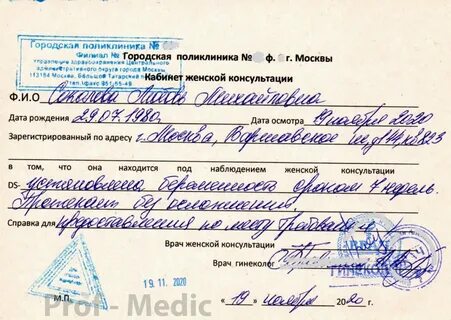 Городская поликлиника №
Филиал №
управление здравоохранения Центрального
административного округа города Москвы
113184 Москва, Большой Татарский
тел./факс 951-55-49
Городская поликлиника № ф. г. Москвы
Кабинет женской консультации
Ф.И.О Михайловна
Дата рождения 29.07.1980 Дата осмотра 19 ноября 2020
Зарегистрированный по адресу г. Москва, Варшавское
в том, что она находится под наблюдением женской консультации
DS- установлена беременность сроком 7 недель.
Протекает без осложнений
Справка для предоставления по месту требования
Врач женской консультации
Врач гинеколог
ГИНЕКОЛ
19 11 2020
М.П.
Prof - Medic
« 19 » ноября 2020 г.